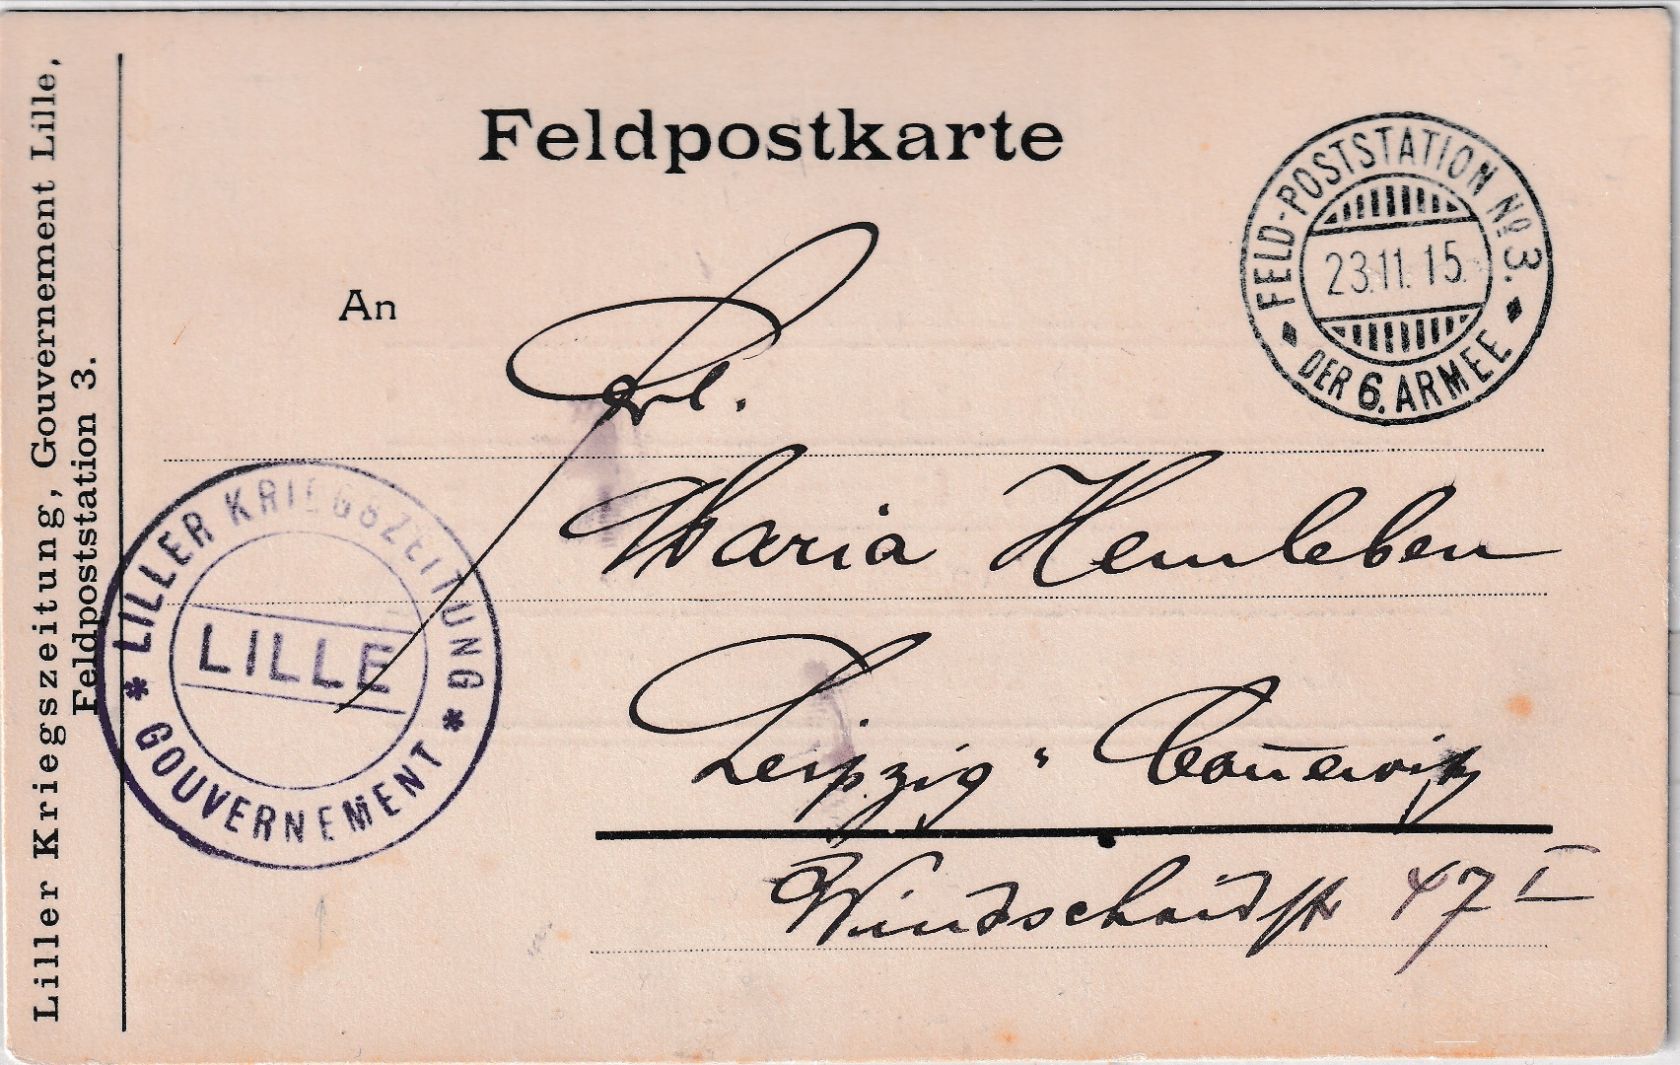 Liller Kriegszeitung, Gouvernement Lille,
Feldpoststation 3.
Feldpostkarte
FELD-POSTSTATION No 3.
23.11.15.
DER 6. ARMEE
An
Frl.
Maria Hemleben
LILLER KRIEGSZEITUNG
LILLE
GOUVERNEMENT
Leipzig-Connewitz
Windscheidstr 47 I